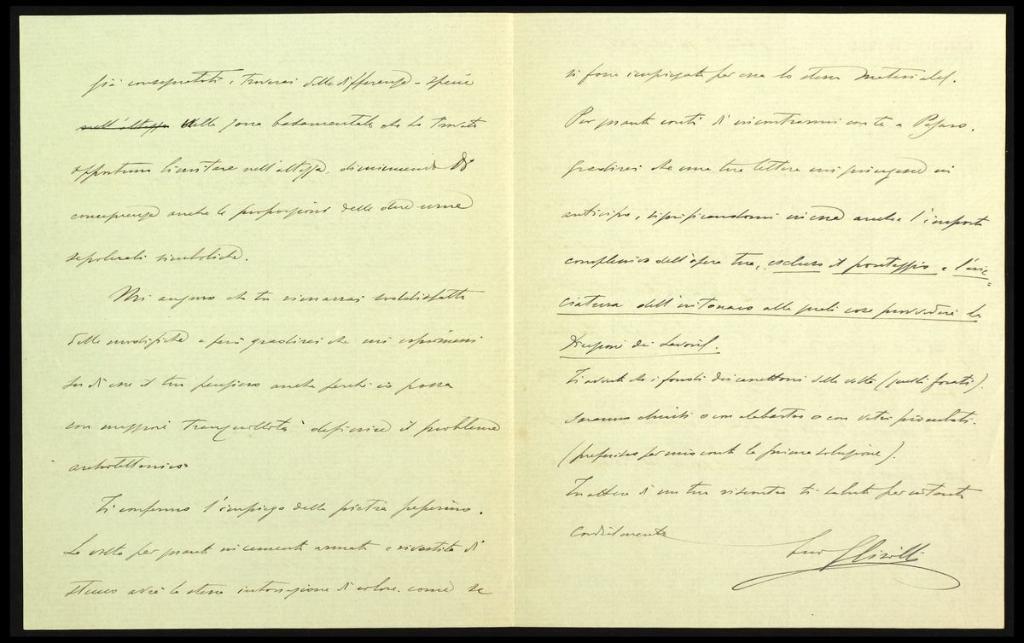 già consegnatati, troverai delle differenze - specie
nell'altezza della zona basamentale che ho trovato
opportuno limitare nell'altezza, diminuendo di
conseguenza anche le proporzioni delle due urne
sepolcrali simboliche.
Mi auguro che tu rimarrai soddisfatto
delle modifiche e però gradirei che mi esprimessi
su di esse il tuo pensiero anche perché io possa
con maggiore tranquillità definire il problema
architettonico
Ti confermo l'impiego della pietra peperino.
La volta per quanto in cemento armato e rivestita di
stucco avrà la stessa intonazione di colore come se
si fosse impiegato per essa lo stesso materiale.
Per quanto conti di incontrarmi con te a Pesaro,
gradirei che una tua lettera mi giungesse in
anticipo, significandomi in essa anche l'importo
complessivo dell'opera tua, escluso il ponteggio e l'arric-
ciatura dell'intonaco alle quali cose provvederà la
Direzione dei Lavori.
Ti avverto che i fondi dei cassettoni della volta (quelli forati)
saranno chiusi o con alabastro o con vetri
(preferisco per mio conto la prima soluzione).
In attesa di un tuo riscontro ti saluto per intanto
Cordialmente
tuo